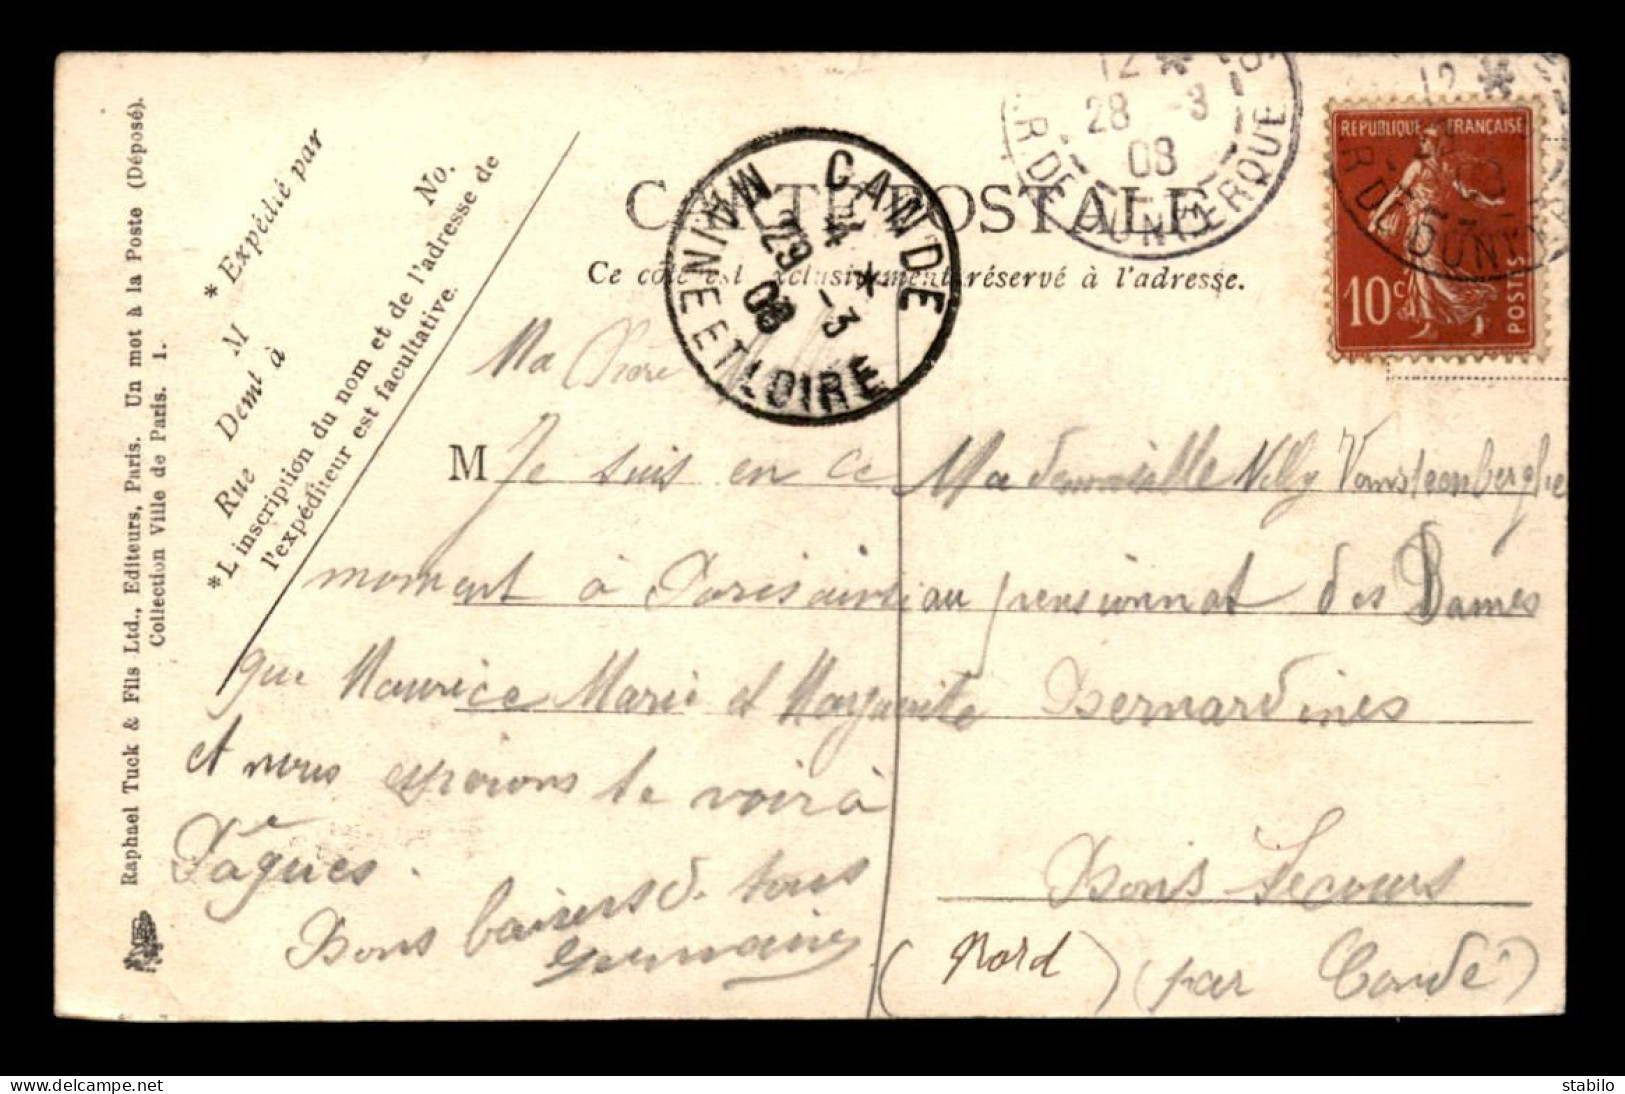 Raphael Tuck & Fils Ltd., Editeurs, Paris. Un mot à la Poste (Déposé).
Collection Ville de Paris. 1.
* Expédié par
M
No.
Demt à
Rue
*L inscription du nom et de l'adresse de
l'expéditeur est facultative.
CARTE POSTALE
Ce côté est exclusivement réservé à l'adresse.
CANDE
14 *
29 -3
08
MAINE ET LOIRE
12 *
28 -3
08
R DE DUNKERQUE
12 *
R DE DUNK
REPUBLIQUE FRANÇAISE
10c
POSTES
Ma
M
Je suis en ce
moment à Paris ainsi
que Maurice Marie et Marguerite
et nous espérons te voir à
Pâques.
Bons baisers de tous
Germaine
Mademoiselle Nelly Vansteenberghe
au pensionnat des Dames
Bernardines
Bons Secours
(Nord) (par Condé)
stabilo